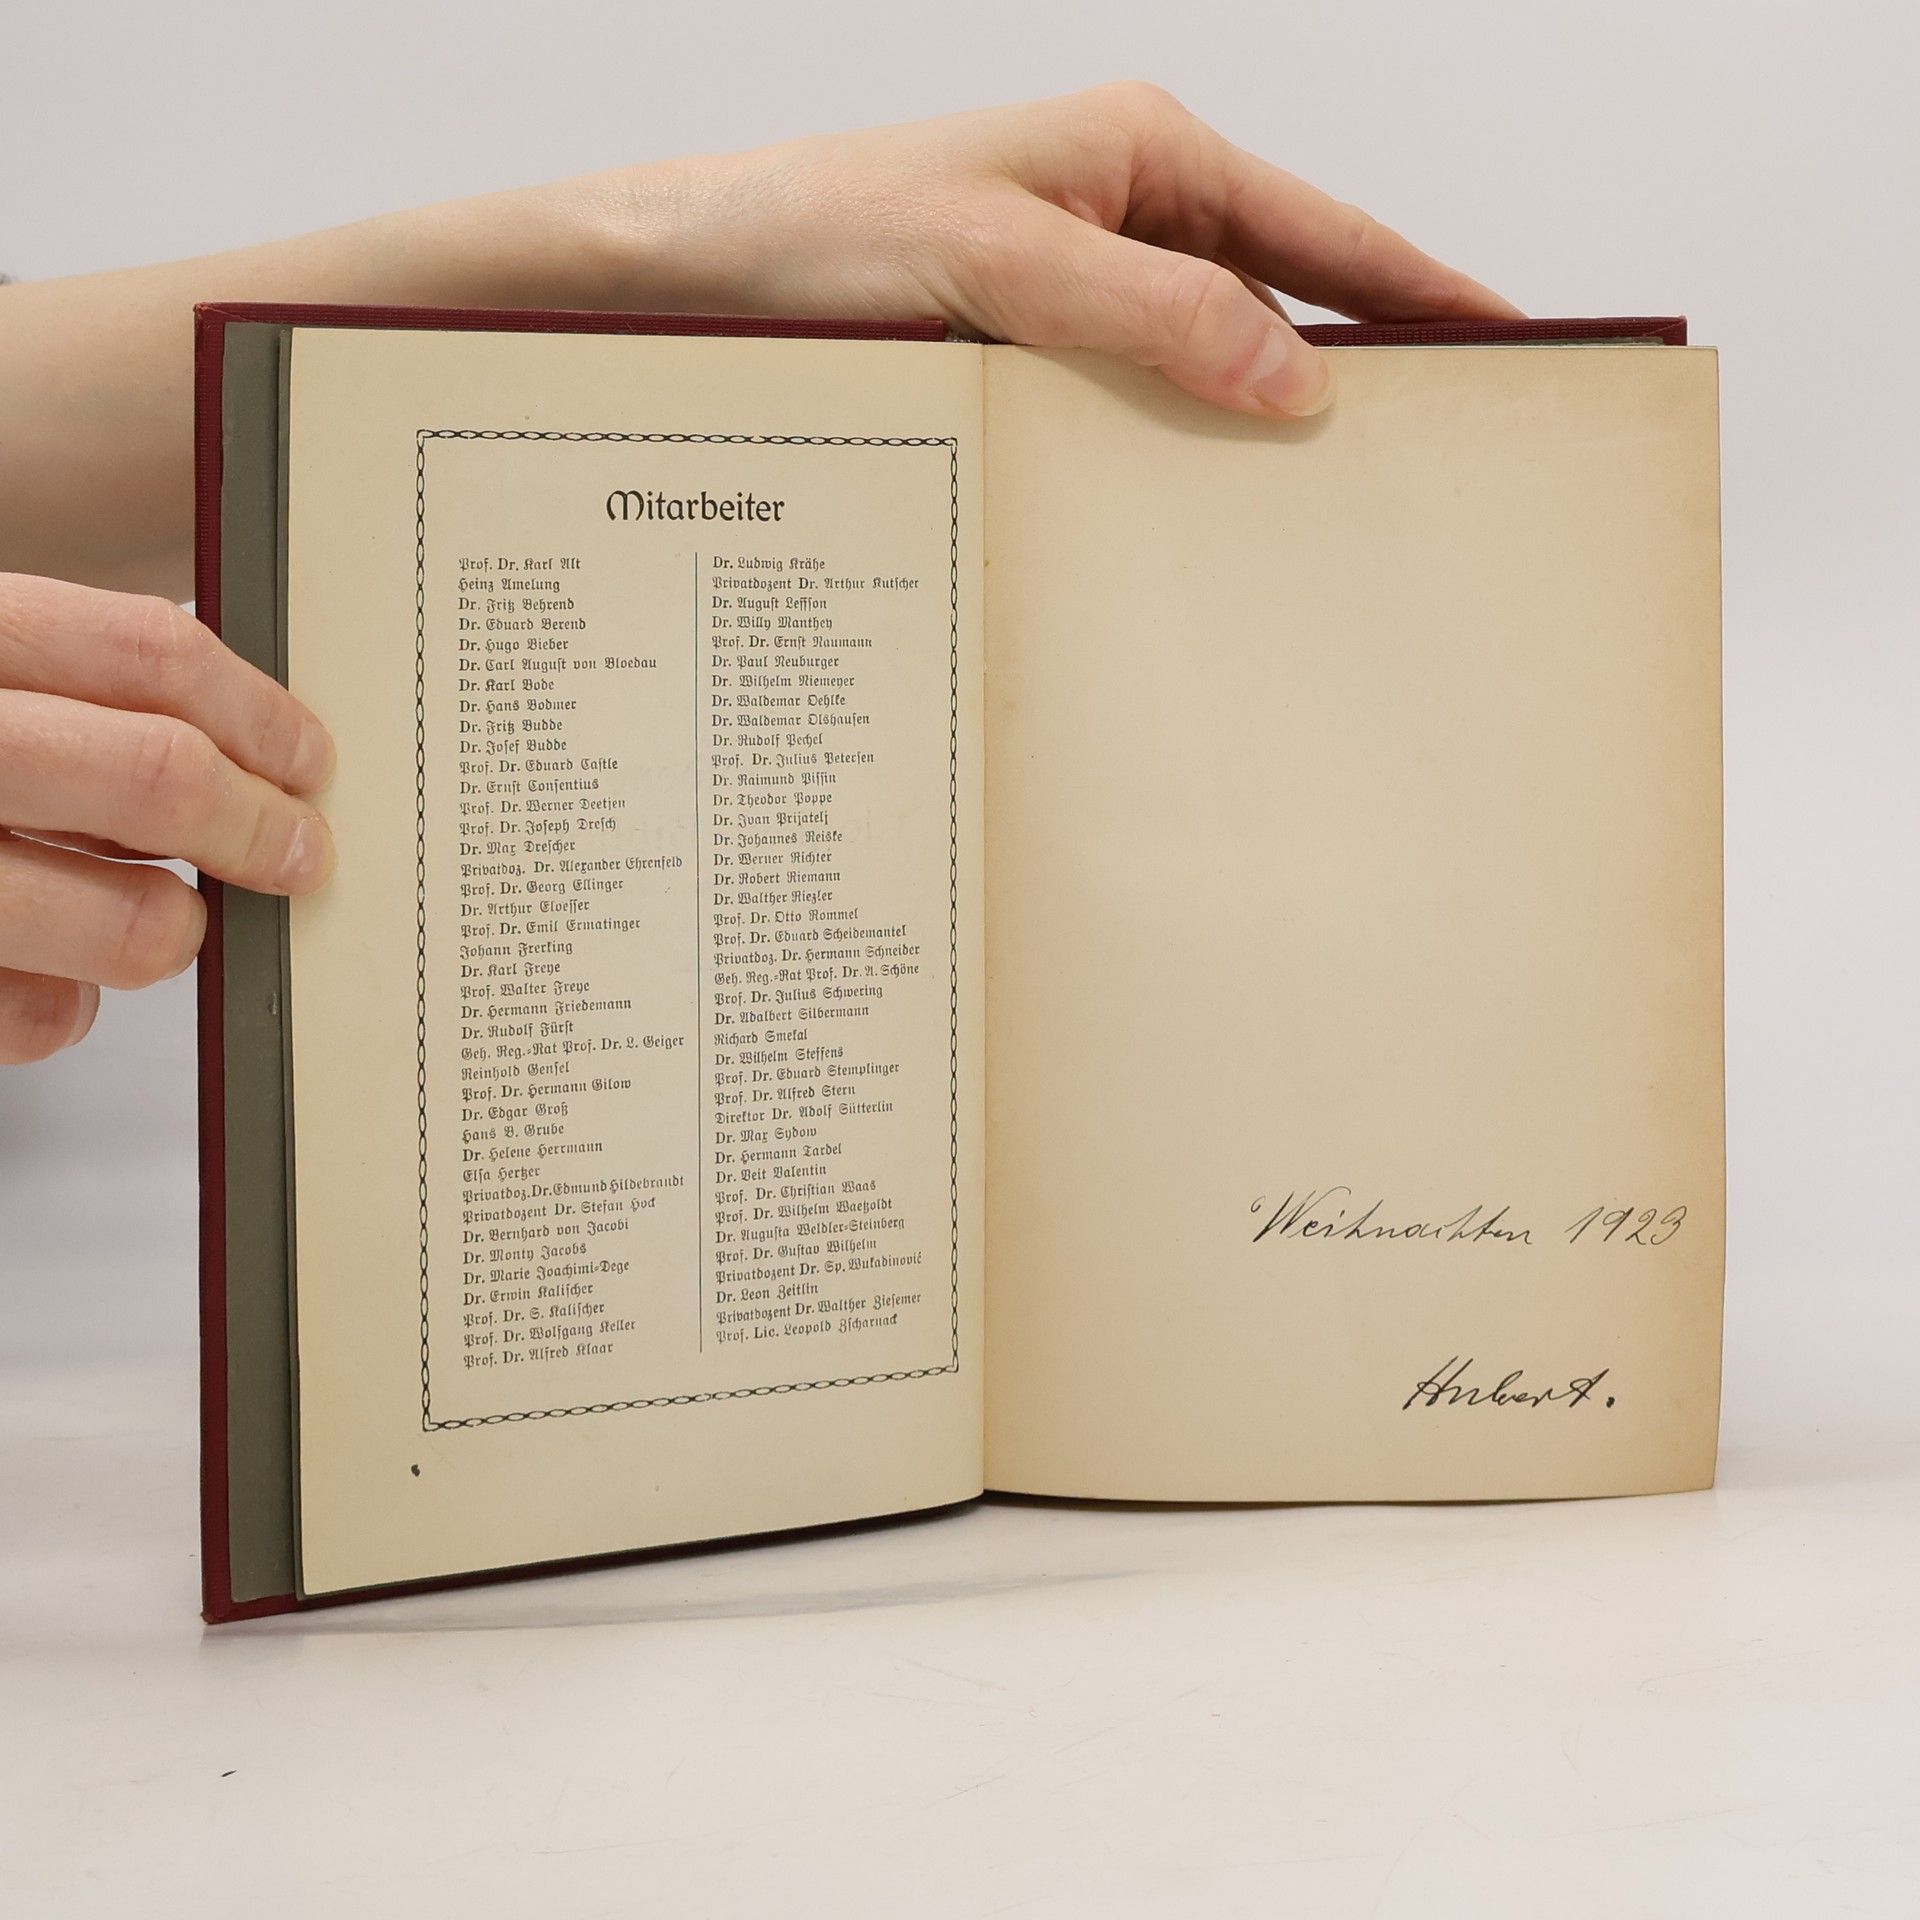 Mitarbeiter
Prof. Dr. Karl Alt
Heinz Amelung
Dr. Fritz Behrend
Dr. Eduard Berend
Dr. Hugo Bieber
Dr. Carl August von Bloedau
Dr. Karl Bode
Dr. Hans Bodmer
Dr. Fritz Budde
Dr. Josef Budde
Prof. Dr. Eduard Castle
Dr. Ernst Consentius
Prof. Dr. Werner Deetjen
Prof. Dr. Joseph Dresch
Dr. Max Drescher
Privatdoz. Dr. Alexander Ehrenfeld
Prof. Dr. Georg Ellinger
Dr. Arthur Eloesser
Prof. Dr. Emil Ermatinger
Johann Frerking
Dr. Karl Freye
Prof. Walter Freye
Dr. Hermann Friedemann
Dr. Rudolf Fürst
Geh. Reg.-Rat Prof. Dr. L. Geiger
Reinhold Gensel
Prof. Dr. Hermann Gilow
Dr. Edgar Groß
Hans B. Grube
Dr. Helene Herrmann
Elsa Hertzer
Privatdoz. Dr. Edmund Hildebrandt
Privatdozent Dr. Stefan Hock
Dr. Bernhard von Jacobi
Dr. Monty Jacobs
Dr. Marie Joachimi-Dege
Dr. Erwin Kalischer
Prof. Dr. S. Kalischer
Prof. Dr. Wolfgang Keller
Prof. Dr. Alfred Klaar
Dr. Ludwig Krähe
Privatdozent Dr. Arthur Kutscher
Dr. August Leffson
Dr. Willy Manthey
Prof. Dr. Ernst Naumann
Dr. Paul Neuburger
Dr. Wilhelm Niemeyer
Dr. Waldemar Oehlke
Dr. Waldemar Olshausen
Dr. Rudolf Pechel
Prof. Dr. Julius Petersen
Dr. Raimund Pissin
Dr. Theodor Poppe
Dr. Ivan Prijatelj
Dr. Johannes Reiske
Dr. Werner Richter
Dr. Robert Riemann
Dr. Walther Riezler
Prof. Dr. Otto Rommel
Prof. Dr. Eduard Scheidemantel
Privatdoz. Dr. Hermann Schneider
Geh. Reg.-Rat Prof. Dr. A. Schöne
Prof. Dr. Julius Schwering
Dr. Adalbert Silbermann
Richard Smekal
Dr. Wilhelm Steffens
Prof. Dr. Eduard Stemplinger
Prof. Dr. Alfred Stern
Direktor Dr. Adolf Sütterlin
Dr. Max Sydow
Dr. Hermann Tardel
Dr. Veit Valentin
Prof. Dr. Christian Waas
Prof. Dr. Wilhelm Waetzoldt
Dr. Augusta Weldler-Steinberg
Prof. Dr. Gustav Wilhelm
Privatdozent Dr. Sp. Wukadinović
Dr. Leon Zeitlin
Privatdozent Dr. Walther Ziesemer
Prof. Lic. Leopold Zscharnack
Weihnachten 1923
Hubert.